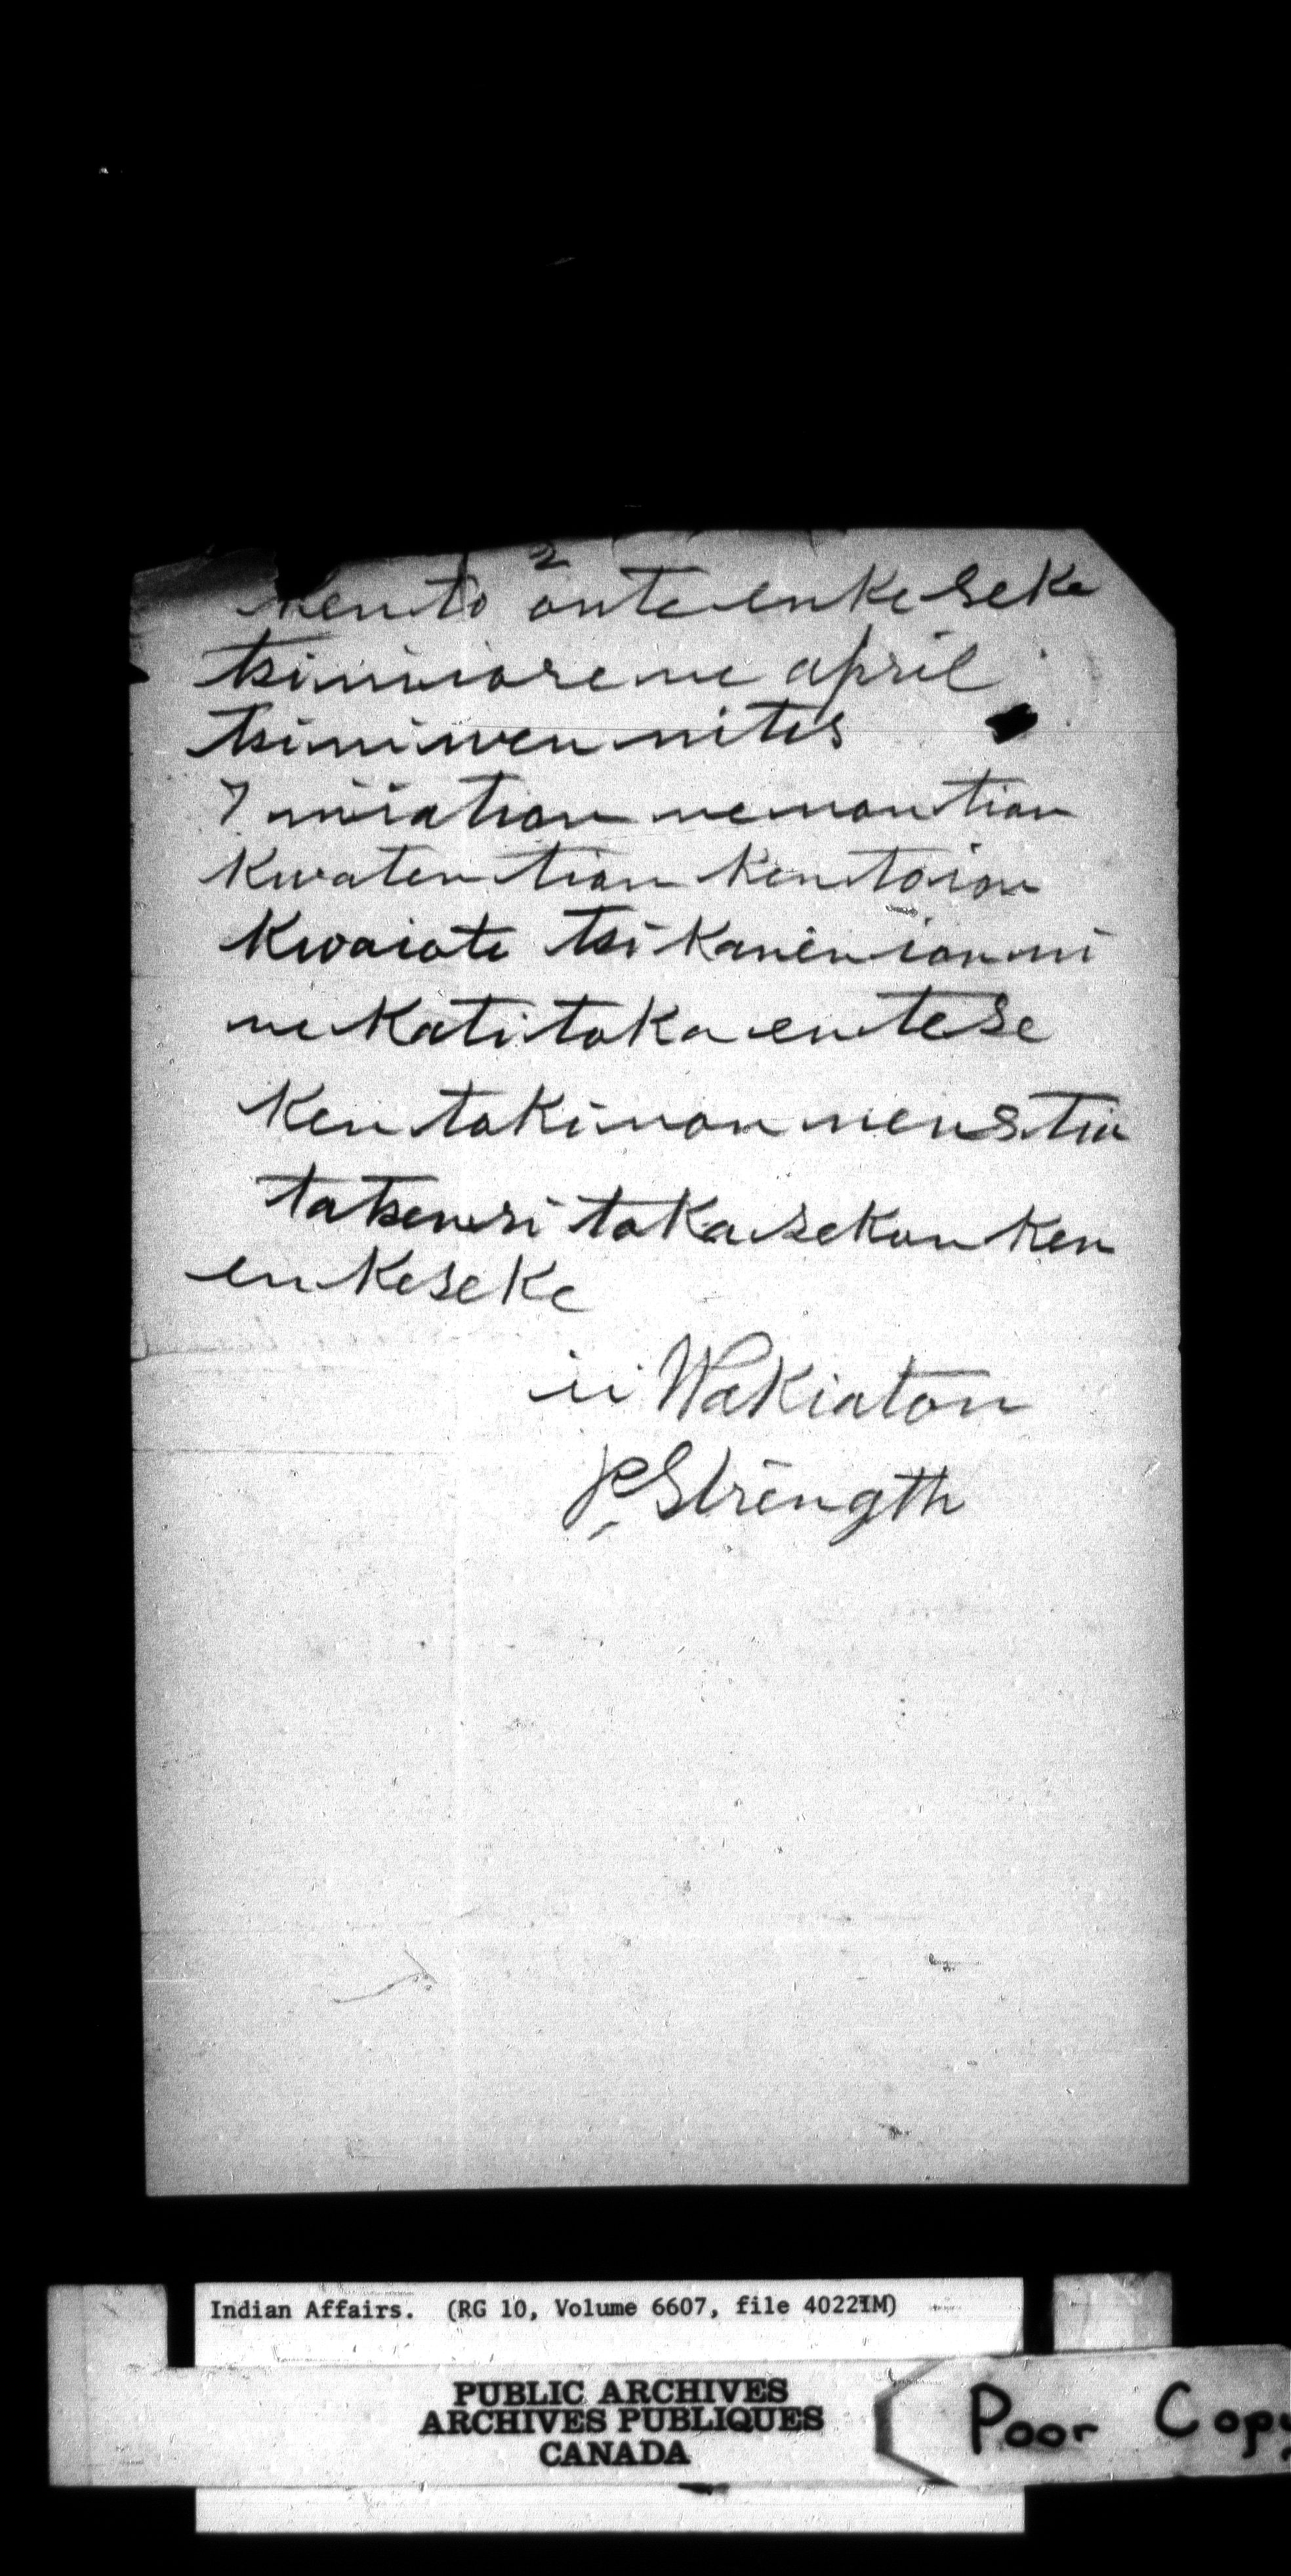 2
kento onte enkeseke
tsiniiore ne april
tsiniwennites
7 niiation nenontion
Kwatention Kentoion
Kwaiote tsi Kanenionni
ne Katitoka entese
Ken tokinon nenstia
tatsensi toka sekon ken
enkeseke
ii Wakiaton
P. Strength
Indian Affairs. (RG 10, Volume 6607, file 40221M)
PUBLIC ARCHIVES
ARCHIVES PUBLIQUES
CANADA
Poor Copy